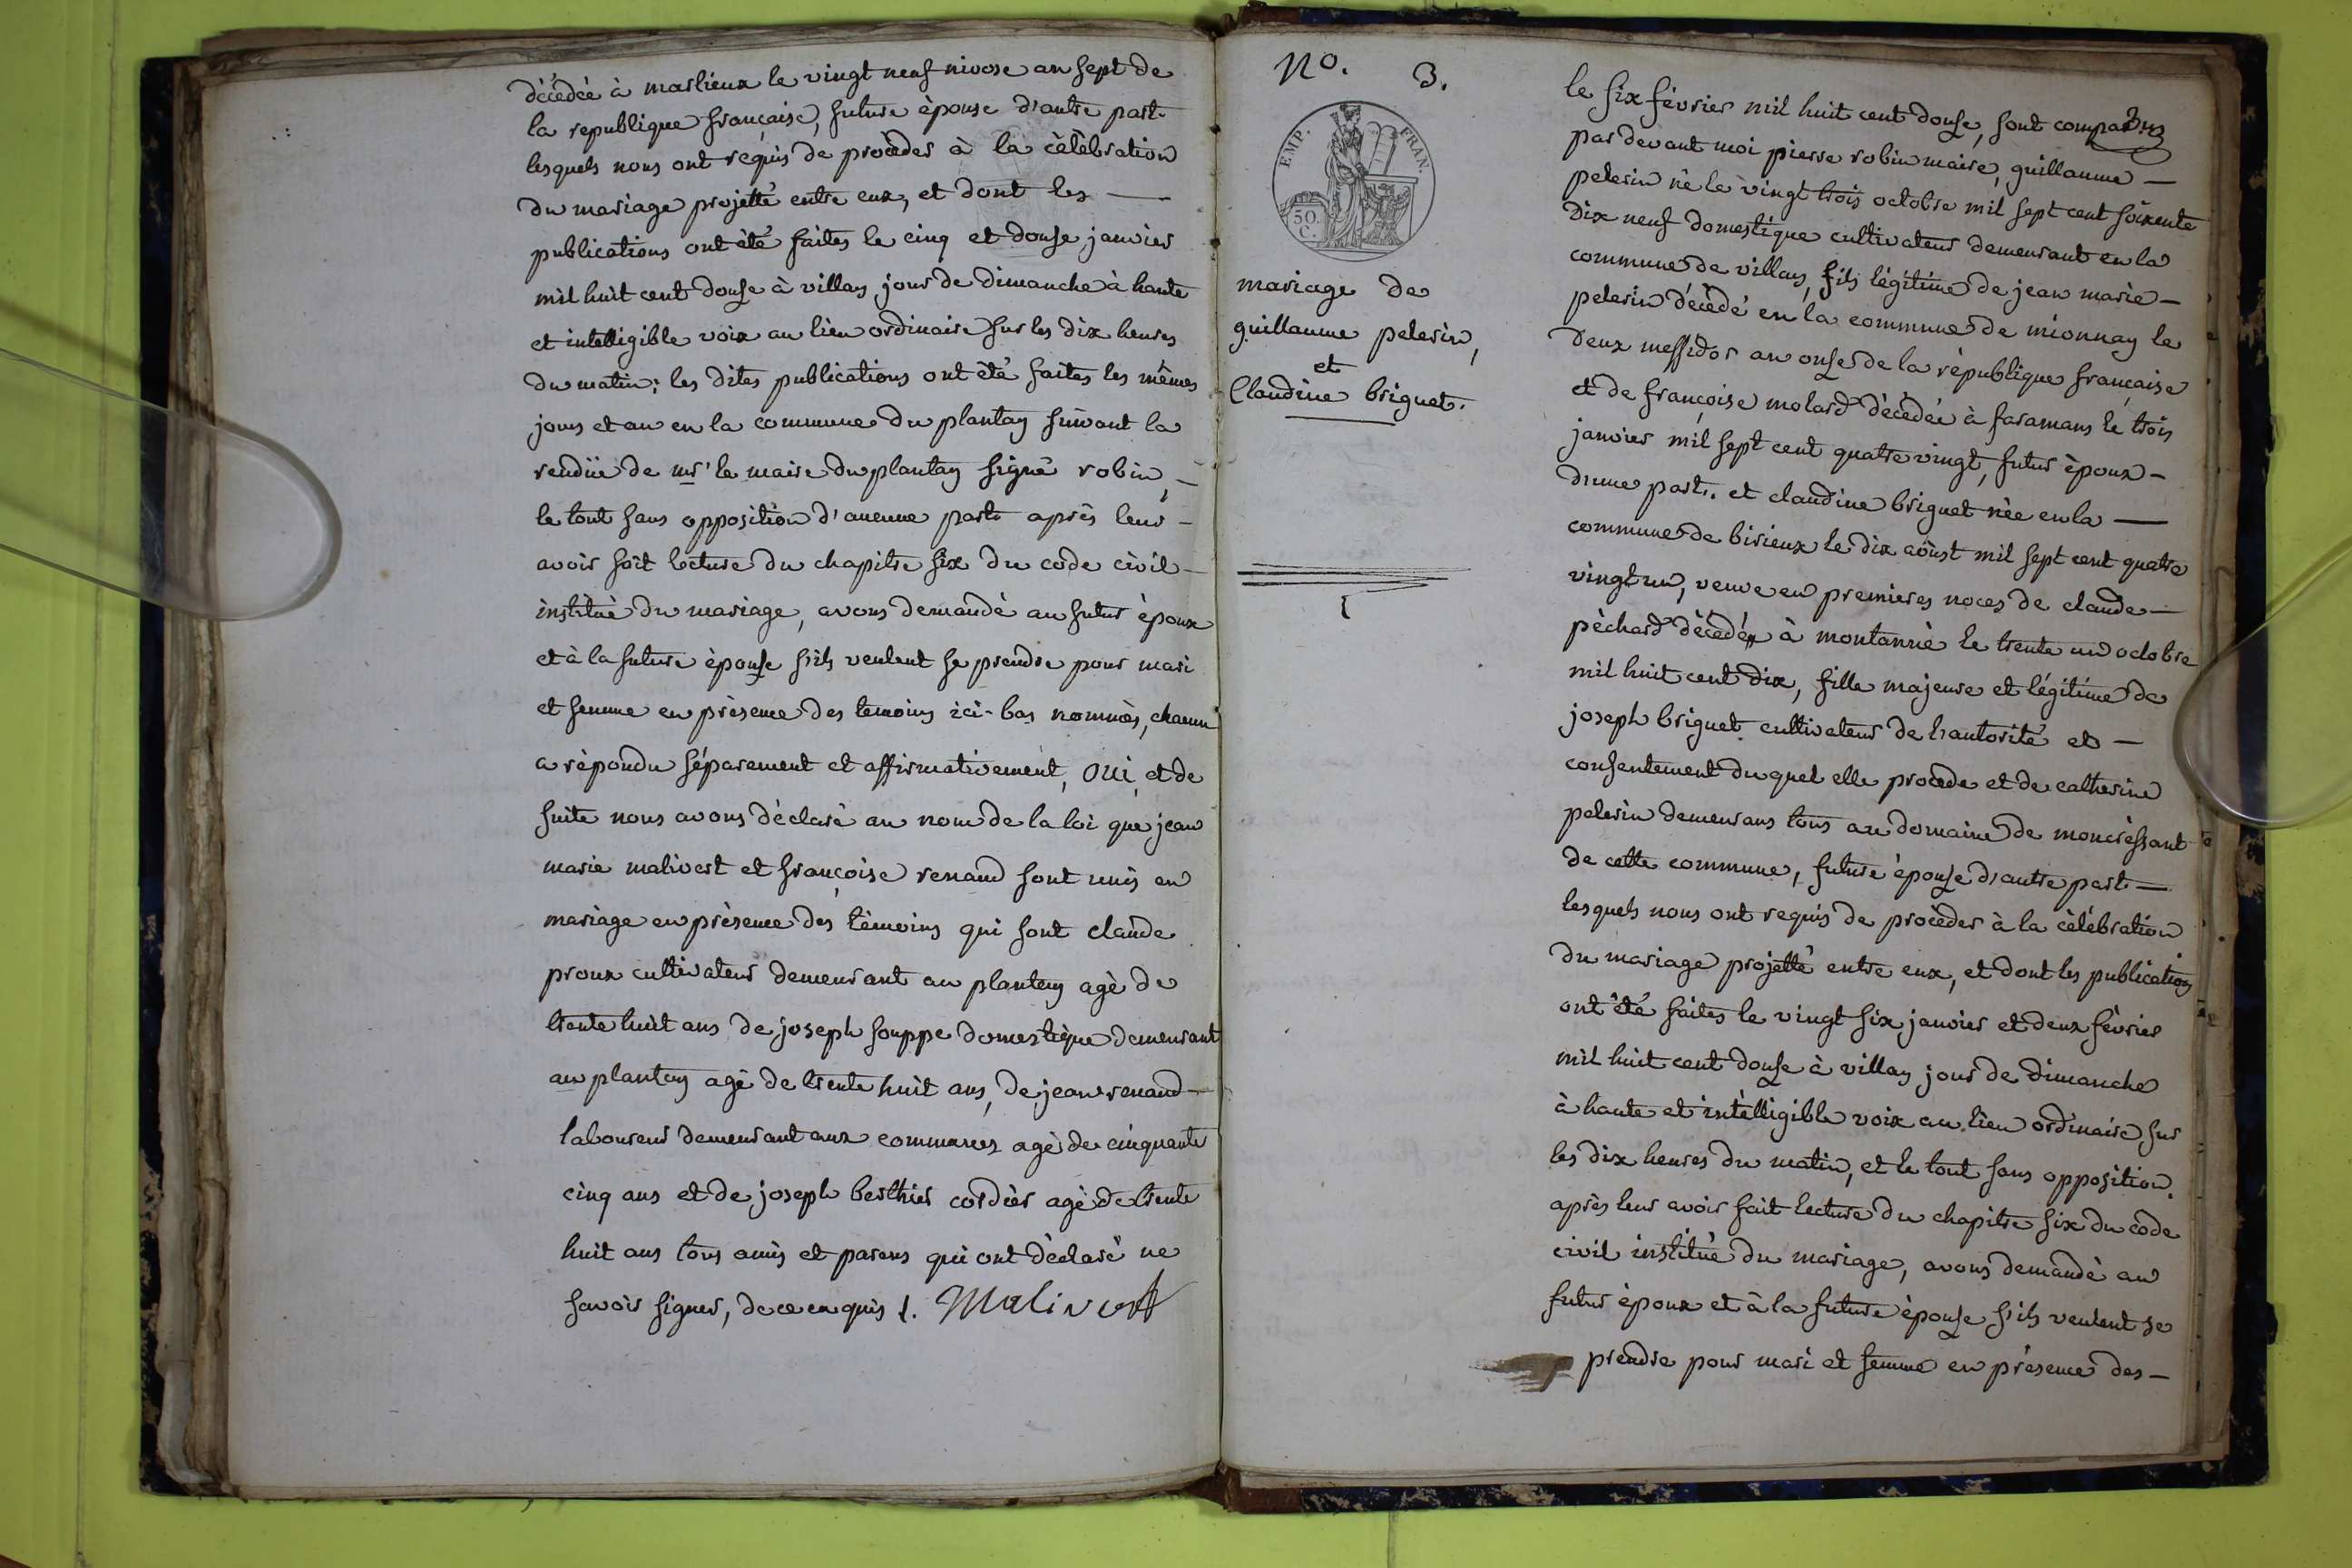 décédée à marlieux le vingt neuf nivose an sept de
la republique française, future épouse d'autre part.
lesquels nous ont requis de procèder à la cèlèbration
du mariage projetté entre eux, et dont les —
publications ont été faites le cinq et douse janvier
mil huit cent douse à villars jour de dimanche à haute
et intelligible voix au lieu ordinaire sur les dix heures
du matin; les dites publications ont été faites les mêmes
jours et an en la commune du plantay suivant la
rendüe de mr le maire du plantay signé robin, —
le tout sans opposition d'aucune part après leur —
avoir fait lecture du chapitre six du code civil —
institué du mariage, avons demandè au futur époux
et à la future èpouse s'ils veulent se prendre pour mari
et femme en présence des temoins ici-bas nommès, chacun
a rèpondu séparement et affirmativement, oui, et de
suite nous avons déclaré au nom de la loi que jean
marie malivert et françoise renaud sont unis en
mariage en présence des tèmoins qui sont claude
proux cultivateur demeurant au plantay agè de
trente huit ans de joseph souppe domestique demeurant
au plantay agé de trente huit ans, de jean renaud —
laboureur demeurant aux communes agè de cinquante
cinq ans et de joseph berthier cordier agé de trente
huit ans tous amis et parens qui ont dèclaré ne
savoir signer, de ce enquis /. Malivert
No. 3.
EMP. FRAN.
50. C.
mariage de
guillaume pelerin,
et
Claudine briguet.
le six février mil huit cent douse, sont comparus
par devant moi pierre robin maire, guillaume —
pelerin né le vingt trois octobre mil sept cent soixente
dix neuf domestique cultivateur demeurant en la
commune de villars, fils légitime de jean marie —
pelerin décédé en la commune de mionnay le
deux messidor an onse de la rèpublique française
et de françoise molard décédée à faramans le trois
janvier mil sept cent quatre vingt, futur èpoux —
d'une part. et claudine briguet née en la —
commune de birieux le dix aôust mil sept cent quatre
vingt un, veuve en premieres noces de claude —
pèchard décédé à montanné le trente un octobre
mil huit cent dix, fille majeure et légitime de
joseph briguet cultivateur de l'autorité et —
consentement duquel elle procede et de catherine
pelerin demeurans tous au domaine de moncrèssant
de cette commune, future épouse d'autre part —
lesquels nous ont requis de procèder à la célébration
du mariage projetté entre eux, et dont les publications
ont été faites le vingt six janvier et deux février
mil huit cent douse à villars jour de dimanche
à haute et intèlligible voix au lieu ordinaire, sur
les dix heures du matin, et le tout sans opposition.
après leur avoir fait lecture du chapitre six du code
civil institué du mariage, avons demandè au
futur époux et à la future épouse s'ils veulent se
prendre pour mari et femme en présence des —